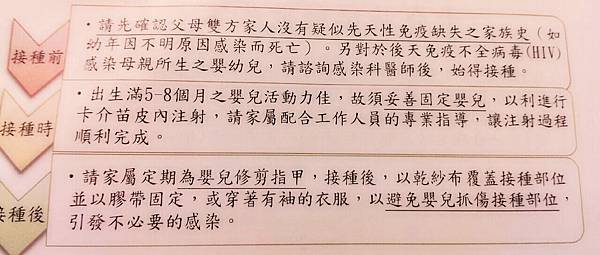 接種前
・請先確認父母雙方家人沒有疑似先天性免疫缺失之家族史（如
幼年因不明原因感染而死亡）。另對於後天免疫不全病毒(HIV)
感染母親所生之嬰幼兒，請諮詢感染科醫師後，始得接種。
接種時
・出生滿5-8個月之嬰兒活動力佳，故須妥善固定嬰兒，以利進行
卡介苗皮內注射，請家屬配合工作人員的專業指導，讓注射過程
順利完成。
接種後
・請家屬定期為嬰兒修剪指甲，接種後，以乾紗布覆蓋接種部位
並以膠帶固定，或穿著有袖的衣服，以避免嬰兒抓傷接種部位，
引發不必要的感染。